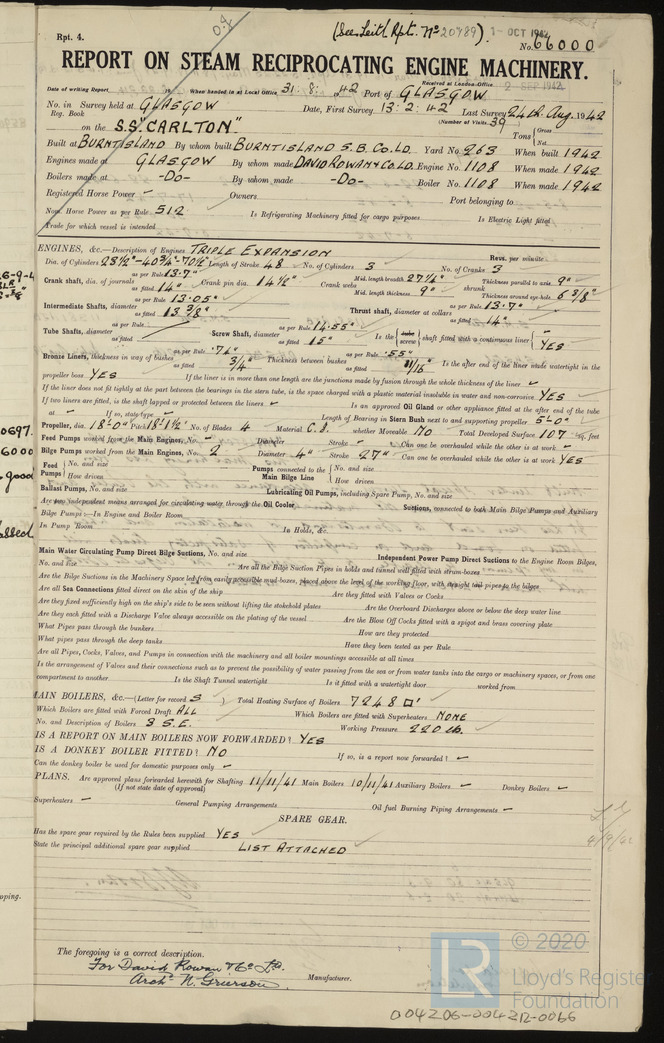 o.g
(See Leith Rpt. No 20789). 1-OCT 1942
Rpt. 4.
No. 66000
REPORT ON STEAM RECIPROCATING ENGINE MACHINERY.
Received at London Office 2 SEP 1942
Date of writing Report 19 When handed in at Local Office 31.8.1942 Port of GLASGOW
No. in Survey held at GLASGOW Date, First Survey 13:2:42 Last Survey 24th Aug. 1942
Reg. Book (Number of Visits 39
on the S.S. "CARLTON". Tons { Gross Net
Built at BURNTISLAND By whom built BURNTISLAND S.B. Co. LD. Yard No. 263 When built 1942
Engines made at GLASGOW By whom made DAVID ROWAN & Co. LD. Engine No. 1108 When made 1942
Boilers made at -Do- By whom made -Do- Boiler No. 1108 When made 1942
Registered Horse Power - Owners Port belonging to
Nom. Horse Power as per Rule 512 Is Refrigerating Machinery fitted for cargo purposes Is Electric Light fitted
Trade for which vessel is intended
ENGINES, &c.—Description of Engines TRIPLE EXPANSION Revs. per minute
Dia. of Cylinders 23½"-40¾"-70½" Length of Stroke 48 No. of Cylinders 3 No. of Cranks 3
Crank shaft, dia. of journals as per Rule 13.7" as fitted 14" Crank pin dia. 14½" Crank webs Mid. length breadth 27¼" Mid. length thickness 9" shrunk Thickness parallel to axis 9" Thickness around eye-hole 6 3/8"
Intermediate Shafts, diameter as per Rule 13.05" as fitted 13 3/8" Thrust shaft, diameter at collars as per Rule 13.7" as fitted 14"
Tube Shafts, diameter as per Rule as fitted Screw Shaft, diameter as per Rule 14.55" as fitted 15" Is the { tube screw } shaft fitted with a continuous liner { YES
Bronze Liners, thickness in way of bushes as per Rule .74" as fitted 3/4" Thickness between bushes as per Rule .55" as fitted 11/16" Is the after end of the liner made watertight in the
propeller boss YES If the liner is in more than one length are the junctions made by fusion through the whole thickness of the liner -
If the liner does not fit tightly at the part between the bearings in the stern tube, is the space charged with a plastic material insoluble in water and non-corrosive YES
If two liners are fitted, is the shaft lapped or protected between the liners - Is an approved Oil Gland or other appliance fitted at the after end of the tube
at - If so, state type - Length of Bearing in Stern Bush next to and supporting propeller 5'-0"
Propeller, dia. 18'-0" Pitch 18'-1½" No. of Blades 4 Material C.I. whether Moveable NO Total Developed Surface 107 sq. feet
Feed Pumps worked from the Main Engines, No. - Diameter Stroke - Can one be overhauled while the other is at work -
Bilge Pumps worked from the Main Engines, No. 2 Diameter 4" Stroke 27" Can one be overhauled while the other is at work YES
Feed Pumps { No. and size How driven Pumps connected to the Main Bilge Line { No. and size How driven
Ballast Pumps, No. and size Lubricating Oil Pumps, including Spare Pump, No. and size
Are two independent means arranged for circulating water through the Oil Cooler Suctions, connected to both Main Bilge Pumps and Auxiliary
Bilge Pumps:—In Engine and Boiler Room
In Pump Room In Holds, &c.
Main Water Circulating Pump Direct Bilge Suctions, No. and size Independent Power Pump Direct Suctions to the Engine Room Bilges,
No. and size Are all the Bilge Suction Pipes in holds and tunnel well fitted with strum-boxes
Are the Bilge Suctions in the Machinery Space led from easily accessible mud-boxes, placed above the level of the working floor, with straight tail pipes to the bilges
Are all Sea Connections fitted direct on the skin of the ship Are they fitted with Valves or Cocks
Are they fixed sufficiently high on the ship's side to be seen without lifting the stokehold plates Are the Overboard Discharges above or below the deep water line
Are they each fitted with a Discharge Valve always accessible on the plating of the vessel Are the Blow Off Cocks fitted with a spigot and brass covering plate
What Pipes pass through the bunkers How are they protected
What pipes pass through the deep tanks Have they been tested as per Rule
Are all Pipes, Cocks, Valves, and Pumps in connection with the machinery and all boiler mountings accessible at all times
Is the arrangement of Valves and their connections such as to prevent the possibility of water passing from the sea or from water tanks into the cargo or machinery spaces, or from one
compartment to another Is the Shaft Tunnel watertight Is it fitted with a watertight door worked from
MAIN BOILERS, &c.—(Letter for record S ) Total Heating Surface of Boilers 7248 □'
Which Boilers are fitted with Forced Draft ALL Which Boilers are fitted with Superheaters NONE
No. and Description of Boilers 3 S.E. Working Pressure 220 lb.
IS A REPORT ON MAIN BOILERS NOW FORWARDED? YES
IS A DONKEY BOILER FITTED? NO If so, is a report now forwarded? -
Can the donkey boiler be used for domestic purposes only -
PLANS. Are approved plans forwarded herewith for Shafting 11/11/41 Main Boilers 10/11/41 Auxiliary Boilers - Donkey Boilers -
(If not state date of approval)
Superheaters - General Pumping Arrangements Oil fuel Burning Piping Arrangements -
SPARE GEAR.
Has the spare gear required by the Rules been supplied YES
State the principal additional spare gear supplied LIST ATTACHED
The foregoing is a correct description.
For David Rowan & Co Ld.
Archd N. Grierson Manufacturer.
LR
© 2020
Lloyd's Register
Foundation
004206-004212-0066
0697.
6000
good